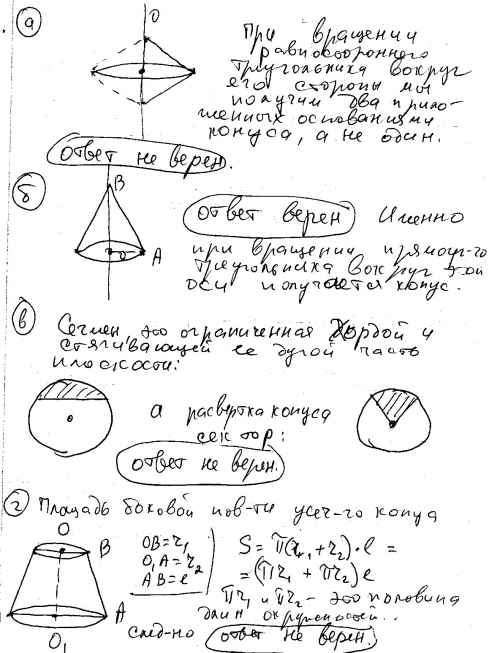 а
О
При вращении
равностороннего
треугольника вокруг
его стороны мы
получим два прило-
женных основаниями
конуса, а не один.
ответ не верен.
б
В
А
ответ верен Именно
при вращении прямоуг-го
треугольника вокруг этой
оси получается конус.
в
Сегмен, это ограниченная хордой и
стягивающей ее дугой часть
плоскости:
а развертка конуса
сектор:
ответ не верен.
г Площадь боковой пов-ти усеч-го конуса
О
В
А
O₁
OB=r₁
O₁A=r₂
AB=l
S = π(r₁+r₂)·l =
= (πr₁ + πr₂)l
πr₁ и πr₂ - это половина
длин окружностей..
след-но ответ не верен.